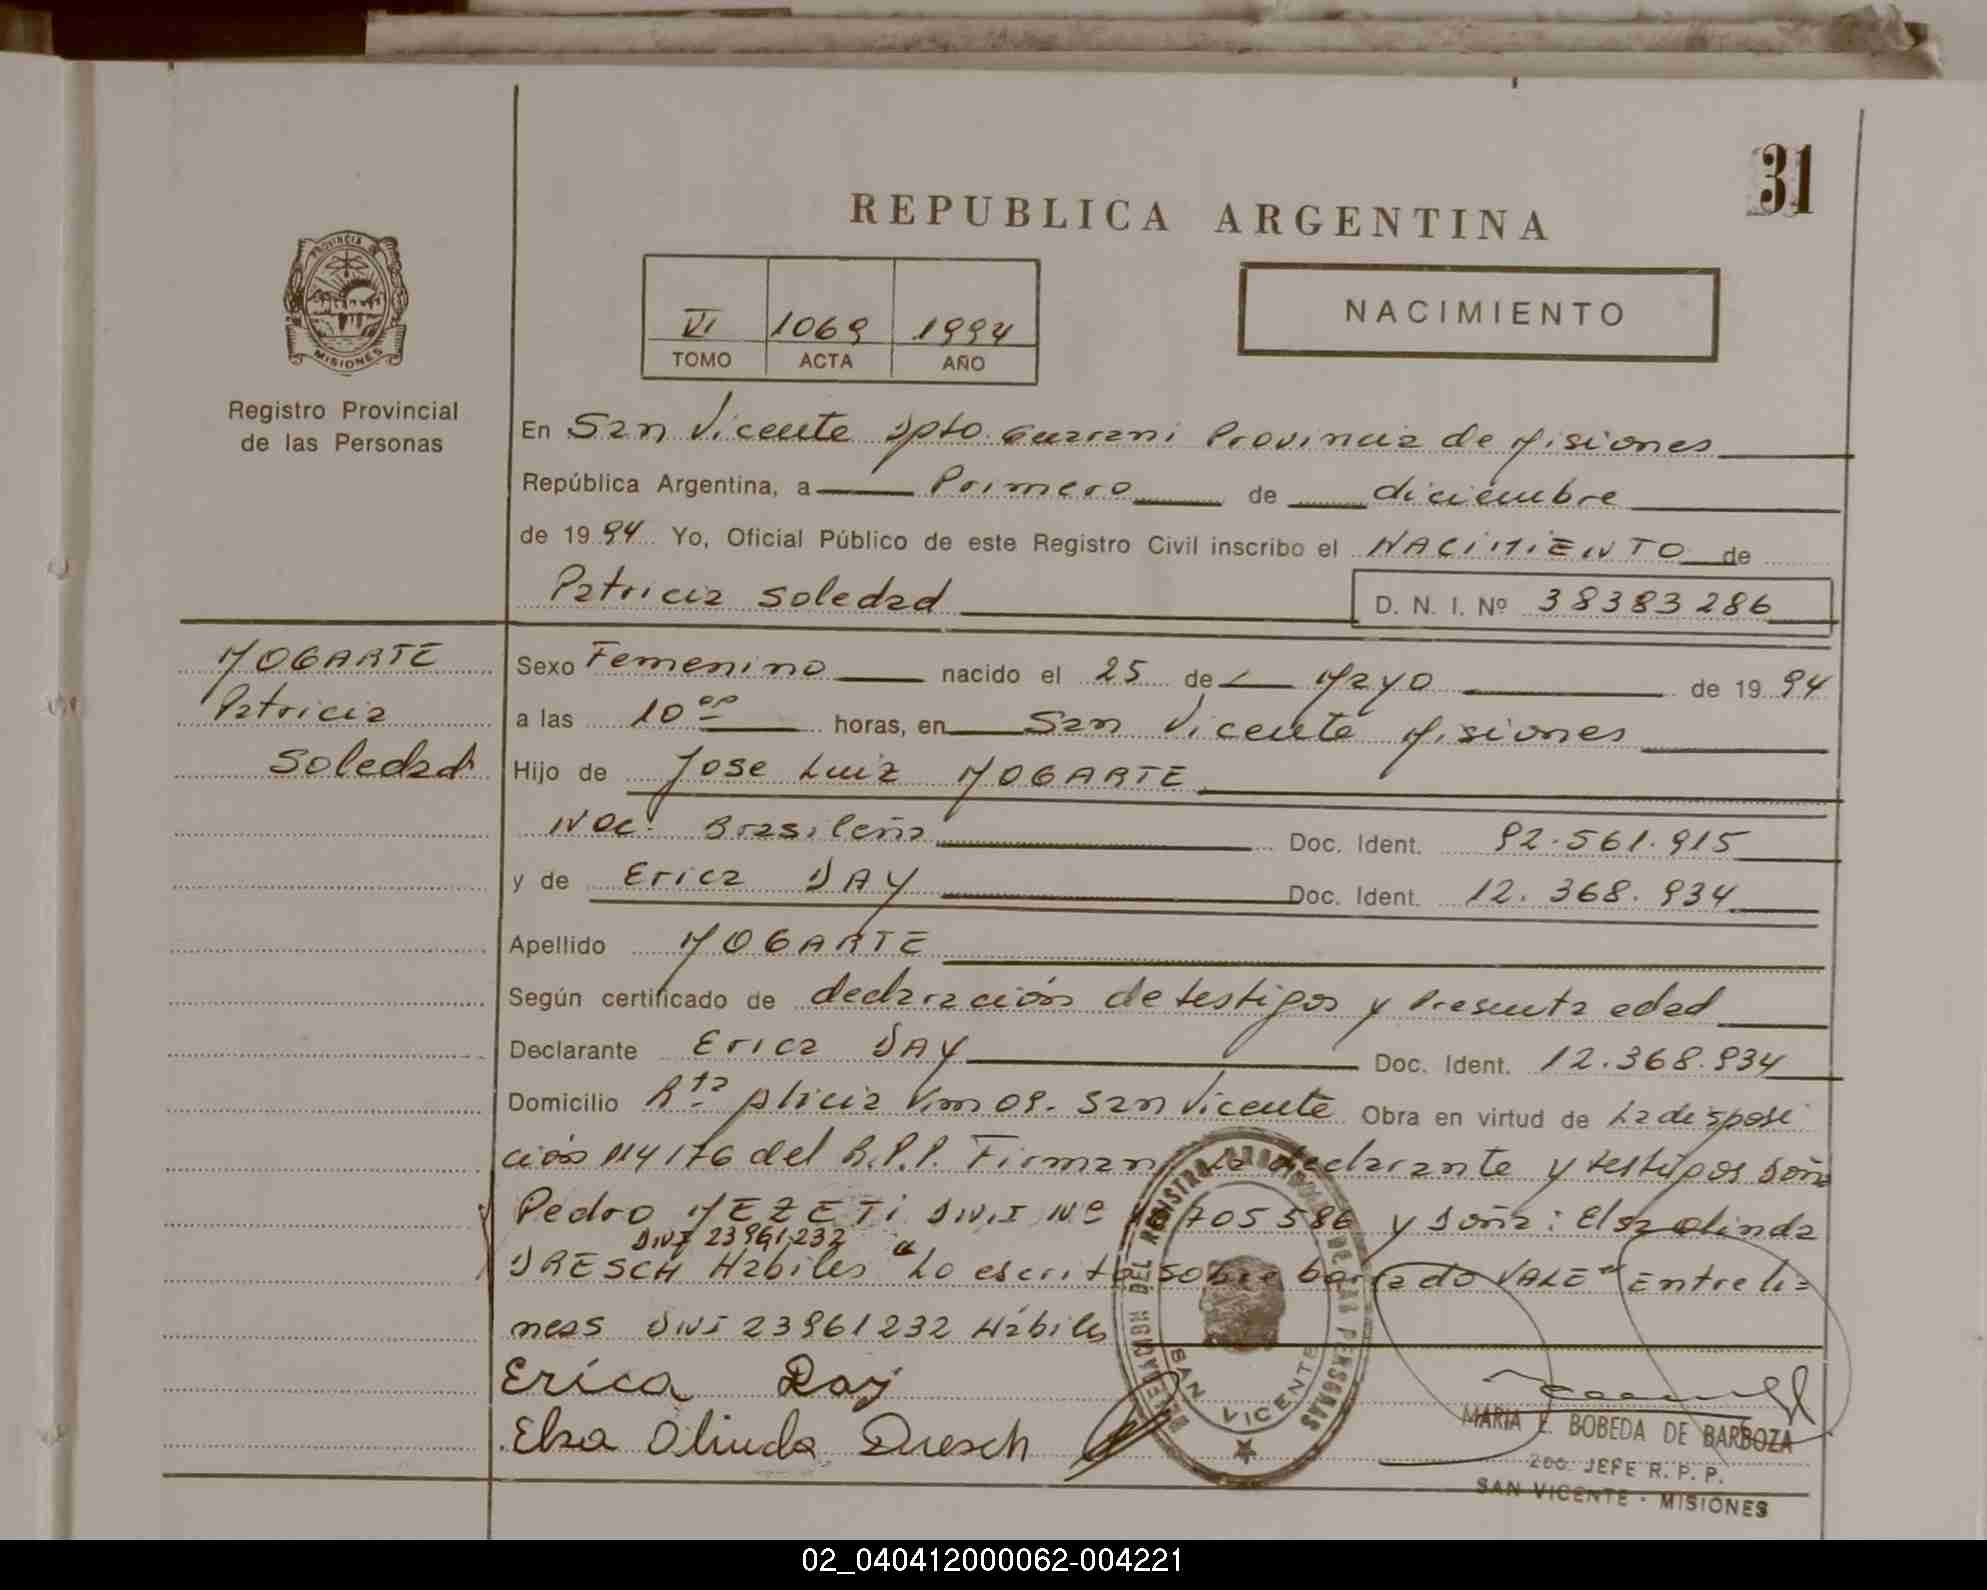 31
REPUBLICA ARGENTINA
PROVINCIA DE
MISIONES
VI 1069 1994
TOMO ACTA AÑO
NACIMIENTO
Registro Provincial
de las Personas
En San Vicente Dpto. Guarani Provincia de Misiones
República Argentina, a Primero de diciembre
de 19 94 Yo, Oficial Público de este Registro Civil inscribo el NACIMIENTO de
Patricia Soledad D. N. I. Nº 38383286
MOGARTE
Patricia
Soledad
Sexo Femenino nacido el 25 de Mayo de 19 94
a las 10 00 horas, en San Vicente Misiones
Hijo de Jose Luiz MOGARTE
Nac. Brasileña Doc. Ident. 92.561.915
y de Erica DAY Doc. Ident. 12.368.934
Apellido MOGARTE
Según certificado de declaración de testigos y Presunta edad
Declarante Erica DAY Doc. Ident. 12.368.934
Domicilio Rta Alicia Km 09. San Vicente Obra en virtud de La disposi
ción 114/76 del R.P.P. Firman La declarante y testigos Don
Pedro MEZETI D.N.I Nº 705586 y Doña: Elsa Olinda
DNI 23961232
DRESCH Habiles "Lo escrito sobre borrado VALE" Entre li=
neas DNI 23961232 Hábiles
Erica Day
Elsa Olinda Dresch
DELEGACION DEL REGISTRO PROVINCIAL DE LAS PERSONAS
SAN VICENTE
MARIA E. BOBEDA DE BARBOZA
2do. JEFE R. P. P.
SAN VICENTE - MISIONES
02_040412000062-004221